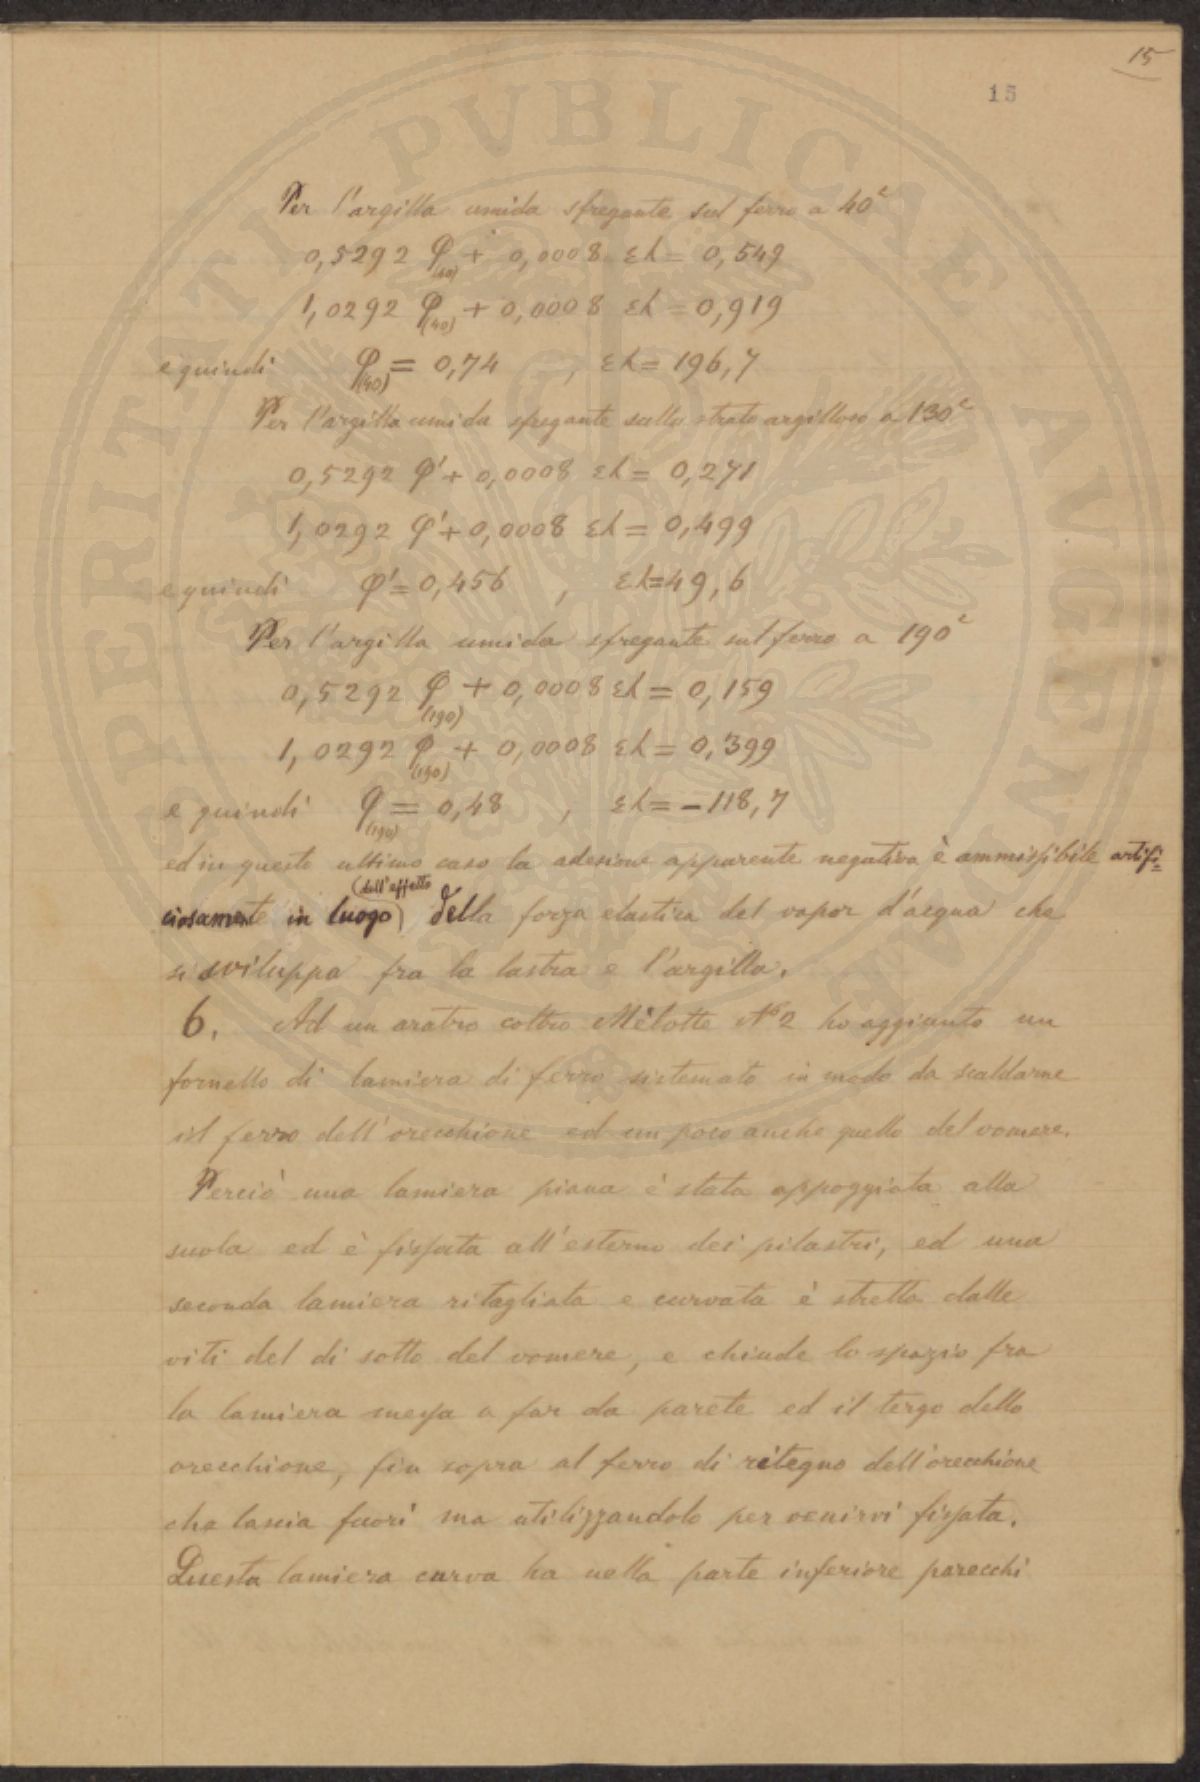 15
15
Per l'argilla umida sfregante sul ferro a 40°
0,5292 φ(40) + 0,0008 ελ = 0,549
1,0292 φ(40) + 0,0008 ελ = 0,919
e quindi φ(40) = 0,74 , ελ = 196,7
Per l'argilla umida sfregante sullo strato argilloso a 130°
0,5292 φ' + 0,0008 ελ = 0,271
1,0292 φ' + 0,0008 ελ = 0,499
e quindi φ' = 0,456 , ελ = 49,6
Per l'argilla umida sfregante sul ferro a 190°
0,5292 φ(190) + 0,0008 ελ = 0,159
1,0292 φ(190) + 0,0008 ελ = 0,399
e quindi φ(190) = 0,48 , ελ = -118,7
ed in questo ultimo caso la adesione apparente negativa è ammissibile artifi=
ciosamente in luogo (dell'effetto) della forza elastica del vapor d'acqua che
si sviluppa fra la lastra e l'argilla.
6. Ad un aratro coltro Mèlotte N° 2 ho aggiunto un
fornello di lamiera di ferro sistemato in modo da scaldarne
il ferro dell'orecchione ed un poco anche quello del vomere.
Perciò una lamiera piana è stata appoggiata alla
suola ed è fissata all'esterno dei pilastri, ed una
seconda lamiera ritagliata e curvata è stretta dalle
viti del di sotto del vomere, e chiude lo spazio fra
la lamiera messa a far da parete ed il tergo dello
orecchione, fin sopra al ferro di ritegno dell'orecchione
che lascia fuori ma utilizzandolo per venirvi fissata.
Questa lamiera curva ha nella parte inferiore parecchi
PERITATI PVBLICAE AVGENDAE